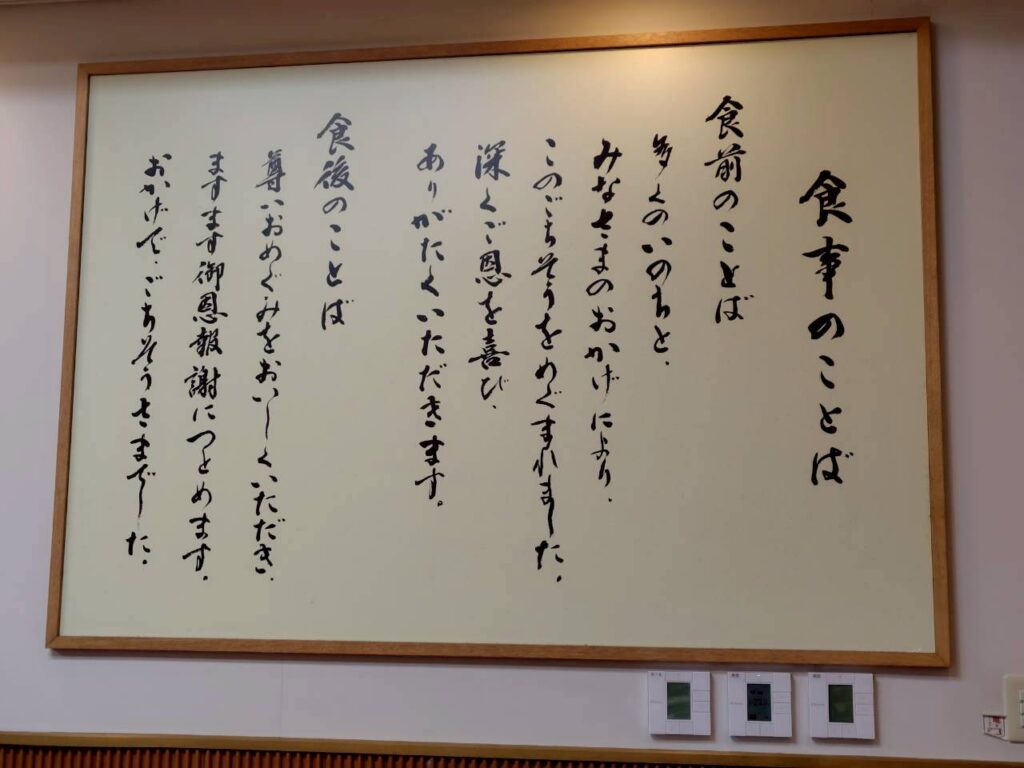 食事のことば
食前のことば
多くのいのちと、
みなさまのおかげにより、
このごちそうをめぐまれました。
深くご恩を喜び、
ありがたくいただきます。
食後のことば
尊いおめぐみをおいしくいただき、
ますます御恩報謝につとめます。
おかげで、ごちそうさまでした。